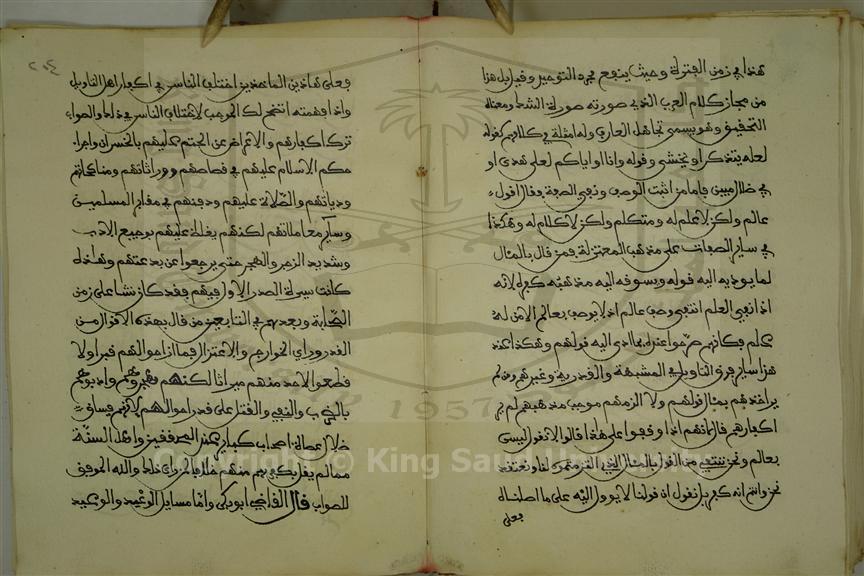 هذا في زمن الفترة وحيث ينفع مجرد التوحيد وقيل بل هذا
من مجاز كلام العرب الذي صورته صورة الشك ومعناه
التحقيق وهو يسمى تجاهل العارف وله امثلة في كلامهم كقوله
لعله يتذكر او يخشى وقوله وانا او اياكم لعلى هدى او
في ضلال مبين فاما من اثبت الوصف ونفى الصفة فقال اقول
عالم ولكن لا علم له ومتكلم ولكن لا كلام له وهكذا
في ساير الصفات على مذهب المعتزلة فمن قال بالمئال
لما يوديه اليه قوله ويسوقه اليه مذهبه كفره لانه
اذا نفى العلم انتفى وصف عالم اذ لا يوصف بعالم الا من له
علم فكانهم صرحوا عنده بما ادى اليه قولهم وهكذا عند
هذا ساير فرق التاويل من المشبهة والقدرية وغيرهم ومن لم
ير اخذهم بمئال قولهم ولا الزمهم موجب مذهبهم لم ير
اكفارهم قال لانهم اذا وقفوا على هذا قالوا لا نقول ليس
بعالم ونحن ننتفي من القول بالمئال الذي الزمتموه لنا ونعتقد
نحن وانتم انه كفر بل نقول ان قولنا لا يوول اليه على ما اصلناه
فعلى
٢٠٤
فعلى هاذين الماخذين اختلف الناس في اكفار اهل التاويل
واذا فهمته اتضح لك الموجب لاختلاف الناس في ذلك والصواب
ترك اكفارهم والاعراض عن الحتم عليهم بالخسران واجراء
حكم الاسلام عليهم في قصاصهم ووراثاتهم ومناكحاتهم
ودياتهم والصلاة عليهم ودفنهم في مقابر المسلمين
وساير معاملاتهم لكنهم يغلظ عليهم بوجيع الادب
وشديد الزجر والهجر حتى يرجعوا عن بدعتهم وهذه
كانت سيرة الصدر الاول فيهم فقد كان نشا على زمن
الصحابة وبعدهم في التابعين من قال بهذه الاقوال من
القدر وراي الخوارج والاعتزال فما ازاحوا لهم قبرا ولا
قطعوا لاحد منهم ميراثا لكنهم هجروهم وادبوهم
بالضرب والنفي والقتل على قدر احوالهم لانهم فساق
ضلال عصاة اصحاب كباير عند المحققين واهل السنة
ممن لم يقل بكفرهم منهم خلافا لمن راى ذلك والله الموفق
للصواب قال القاضي ابو بكر واما مسايل الوعد والوعيد
Copyright © King Saud University
1957